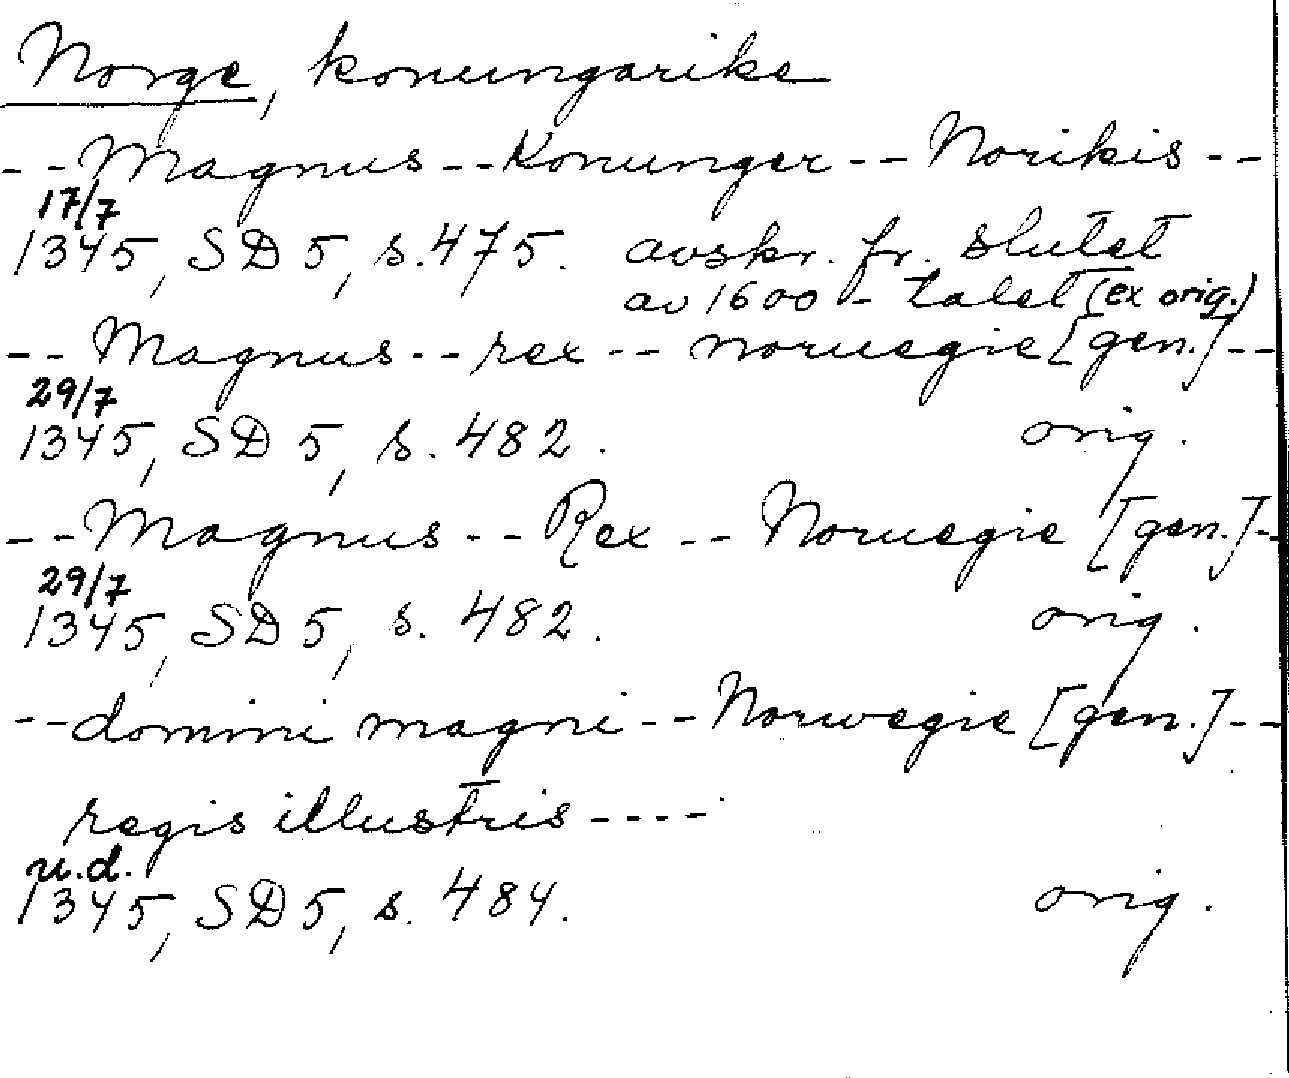 Norge, konungarike
-- Magnus -- Konunger -- Norikis --
17/7
1345, SD 5, s. 475. avskr. fr. slutet
av 1600-talet (ex orig.)
-- Magnus -- rex -- noruegie [gen.] --
29/7
1345, SD 5, s. 482. orig.
-- Magnus -- Rex -- Noruegie [gen.] --
29/7
1345, SD 5, s. 482. orig.
-- domini magni -- Norwegie [gen.] --
regis illustris ----
u.d.
1345, SD 5, s. 484. orig.